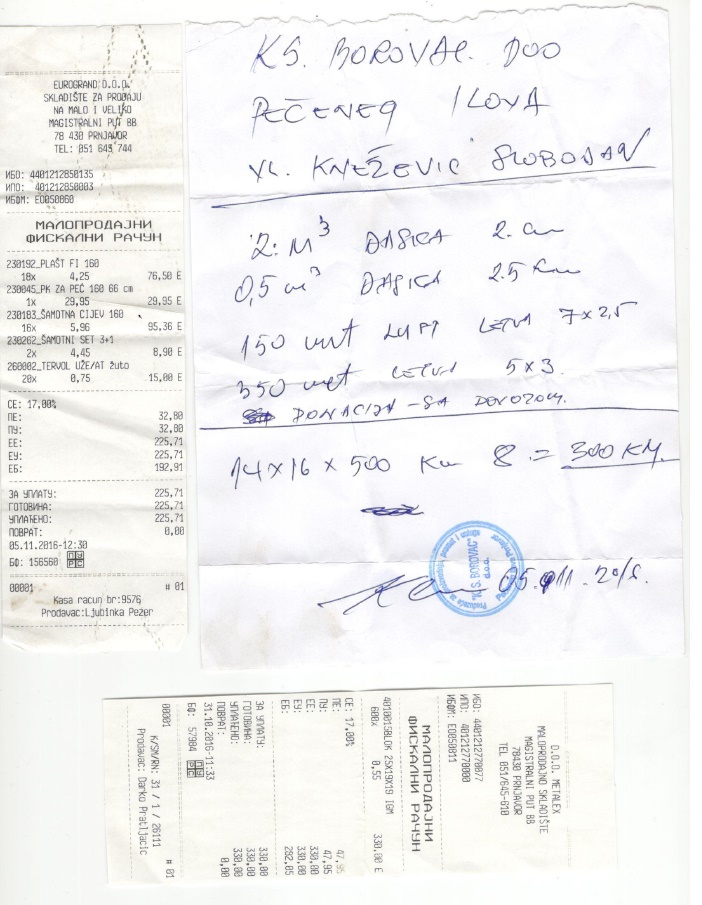 EUROGRAND D.O.O.
SKLADIŠTE ZA PRODAJU
NA MALO I VELIKO
MAGISTRALNI PUT BB
78 430 PRNJAVOR
TEL: 051 645 744
ИБО: 4401212850135
ИПО: 401212850003
ИБФМ: EO050060
МАЛОПРОДАЈНИ
ФИСКАЛНИ РАЧУН
230192_PLAŠT FI 160
18x 4,25 76,50 E
230045_PK ZA PEĆ 160 66 cm
1x 29,95 29,95 E
230103_ŠAMOTNA CIJEV 160
16x 5,96 95,36 E
230262_ŠAMOTNI SET 3+1
2x 4,45 8,90 E
260002_TERVOL UŽE/AT žuto
20x 0,75 15,00 E
СЕ: 17,00%
ПЕ: 32,80
ПУ: 32,80
ЕЕ: 225,71
ЕУ: 225,71
ЕБ: 192,91
ЗА УПЛАТУ: 225,71
ГОТОВИНА: 225,71
УПЛАЋЕНО: 225,71
ПОВРАТ: 0,00
05.11.2016-12:30
БФ: 156560
00001 # 01
Kasa racun br:9576
Prodavac:Ljubinka Pezer
KS. BOROVAC. DOO
PEČENEG ILOVA
VL. KNEŽEVIĆ SLOBODAN
2. M³ DASKA 2. cm
0,5 m³ DASKA 2.5 cm
150 met LETVA 7x2,5
350 met LETVA 5x3.
DONACIJA - SA DOVOZOM.
14x16x500 Kom 8 = 300 KM.
05.11.2016.
D.O.O. METALEX
MALOPRODAJNO SKLADIŠTE
MAGISTRALNI PUT BB
78430 PRNJAVOR
TEL 051/645-610
ИБО: 4401212770077
ИПО: 401212770000
ИБФМ: EO050011
МАЛОПРОДАЈНИ
ФИСКАЛНИ РАЧУН
4010015BLOK 25X19X19 IGM
600x 0,55 330,00 E
СЕ: 17,00%
ПЕ: 47,95
ПУ: 47,95
ЕЕ: 330,00
ЕУ: 330,00
ЕБ: 282,05
ЗА УПЛАТУ: 330,00
ГОТОВИНА: 330,00
УПЛАЋЕНО: 330,00
ПОВРАТ: 0,00
31.10.2016-11:33
БФ: 57904
00001 # 01
K/SM/RN: 31 / 1 / 26111
Prodavac: Darko Pratljacic